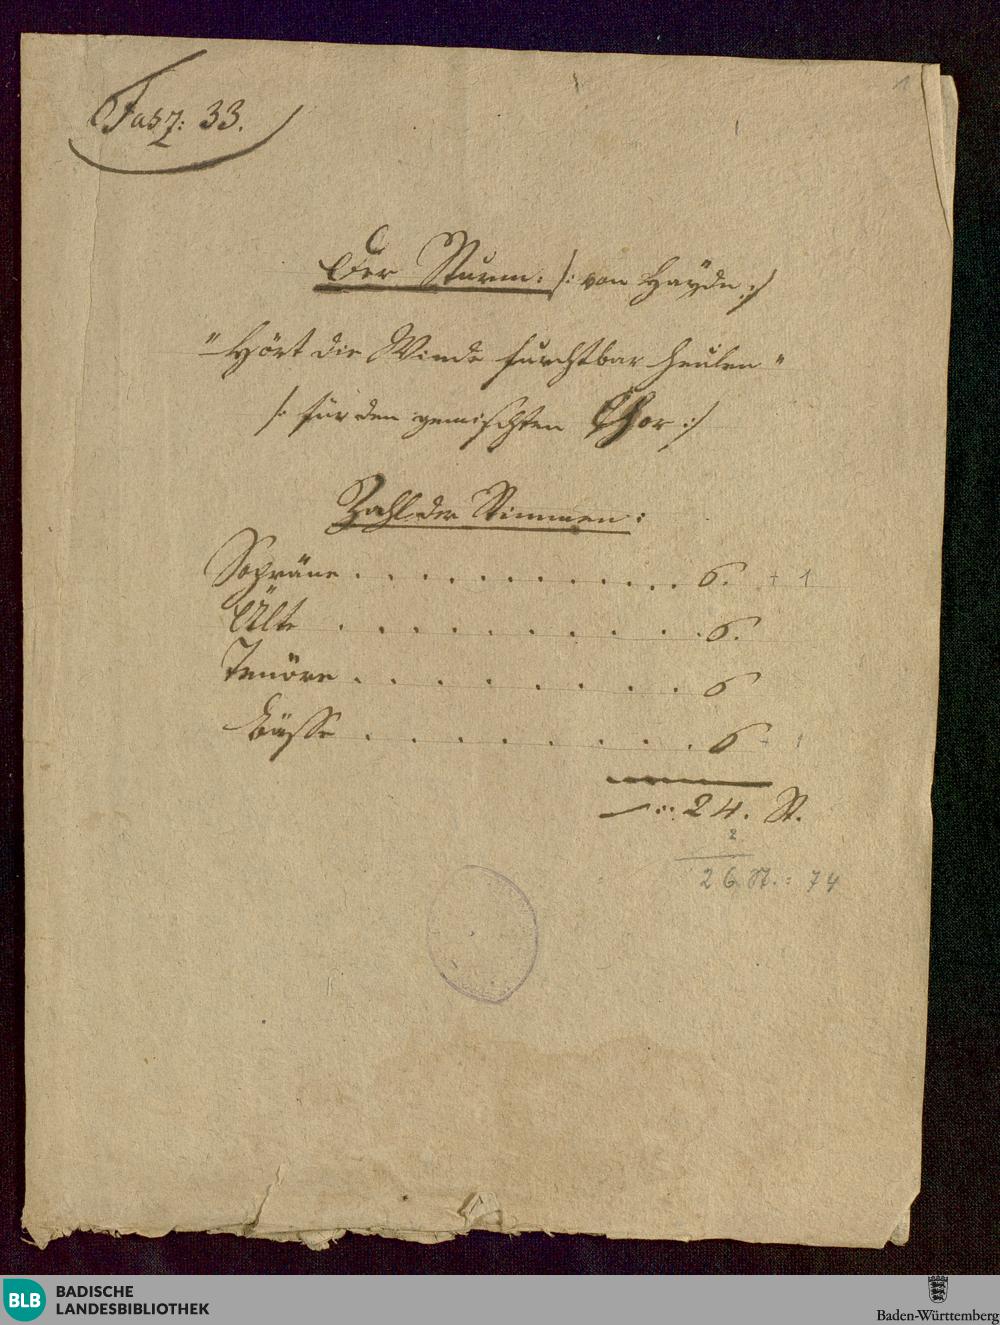 1
Fasz: 33.
Der Sturm. /: von Haydn :/
"Hört die Winde furchtbar heulen"
/: für den gemischten Chor :/
Zahl der Stimmen:
Sopräne . . . . . . . . . . . . 6. + 1
Alte . . . . . . . . . . 6.
Tenöre . . . . . . . . . 6
Bässe . . . . . . . . . 6 + 1
24. St.
2
26 St. : 74
BLB BADISCHE
LANDESBIBLIOTHEK
Baden-Württemberg